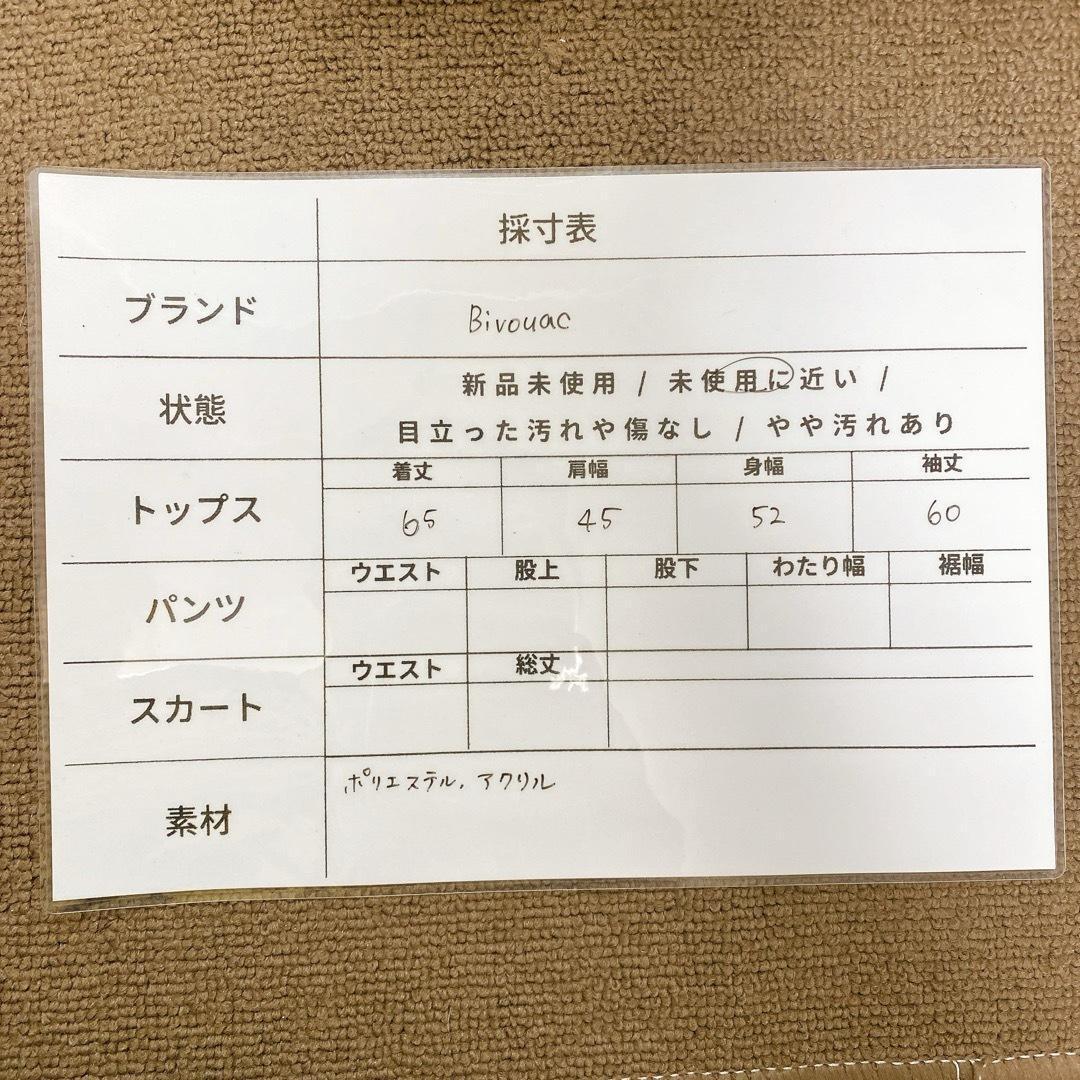 採寸表
ブランド Bivouac
状態 新品未使用 / 未使用に近い /
目立った汚れや傷なし / やや汚れあり
着丈 肩幅 身幅 袖丈
トップス 65 45 52 60
ウエスト 股上 股下 わたり幅 裾幅
パンツ
ウエスト 総丈
スカート
ポリエステル、アクリル
素材